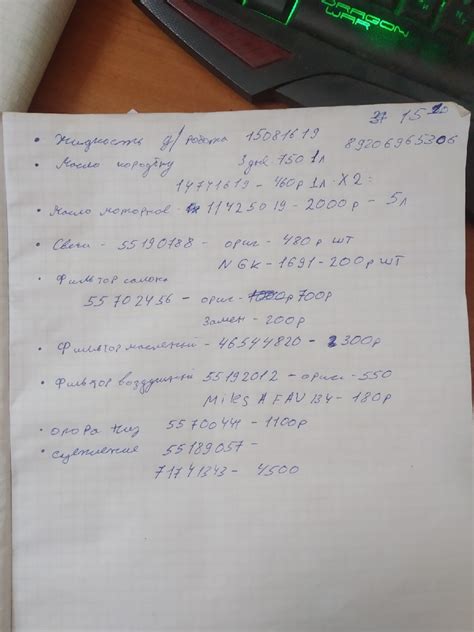 DRAGON
WAR
37 15 20
• Жидкость д/ робота 15081619 89206965306
• Масло коробку 3 дв 150 1л
14741619 - 460р 1л X2
• Масло моторное 11425019 - 2000р - 5л
• Свечи - 55190788 - ориг - 480р шт
NGK - 1691 - 200р шт
• Фильтр салона
55702456 - ориг - 700р
Замен - 200р
• Фильтр масленый - 46544820 - 300р
• Фильтр воздушный 55192012 - ориг - 550
Miles AFAU134 - 180р
• опора низ 55700441 - 1100р
• сцепление 55189057 -
71741343 - 4500